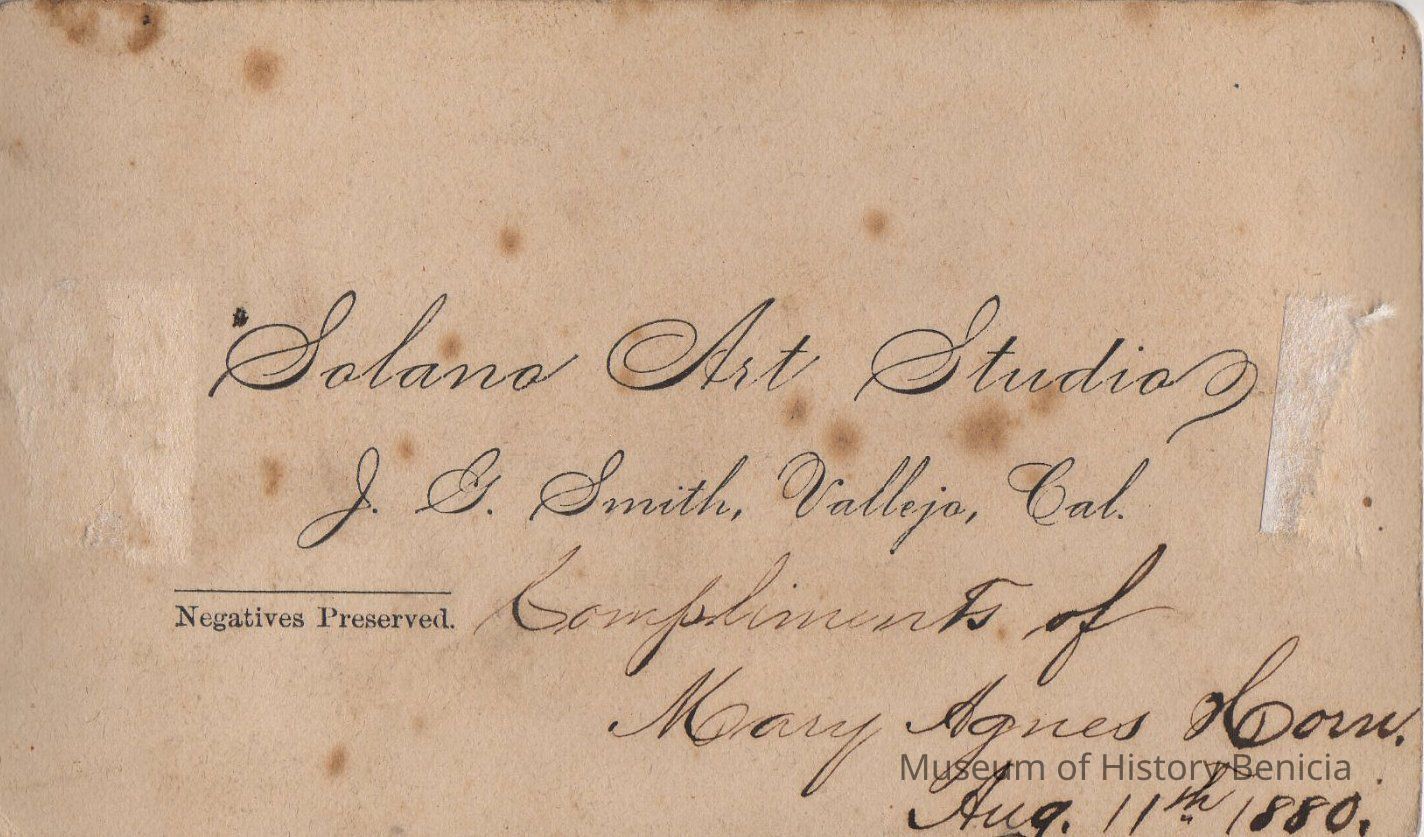 Solano Art Studio
J. G. Smith, Vallejo, Cal.
Negatives Preserved.
Compliments of
Mary Agnes Horn.
Museum of History Benicia
Aug. 11th 1880.